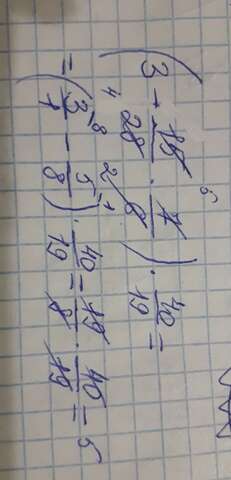 (3 - 15/28 · 7/6) · 40/19 =
= (3/1 - 5/8) · 40/19 = 19/8 · 40/19 = 5